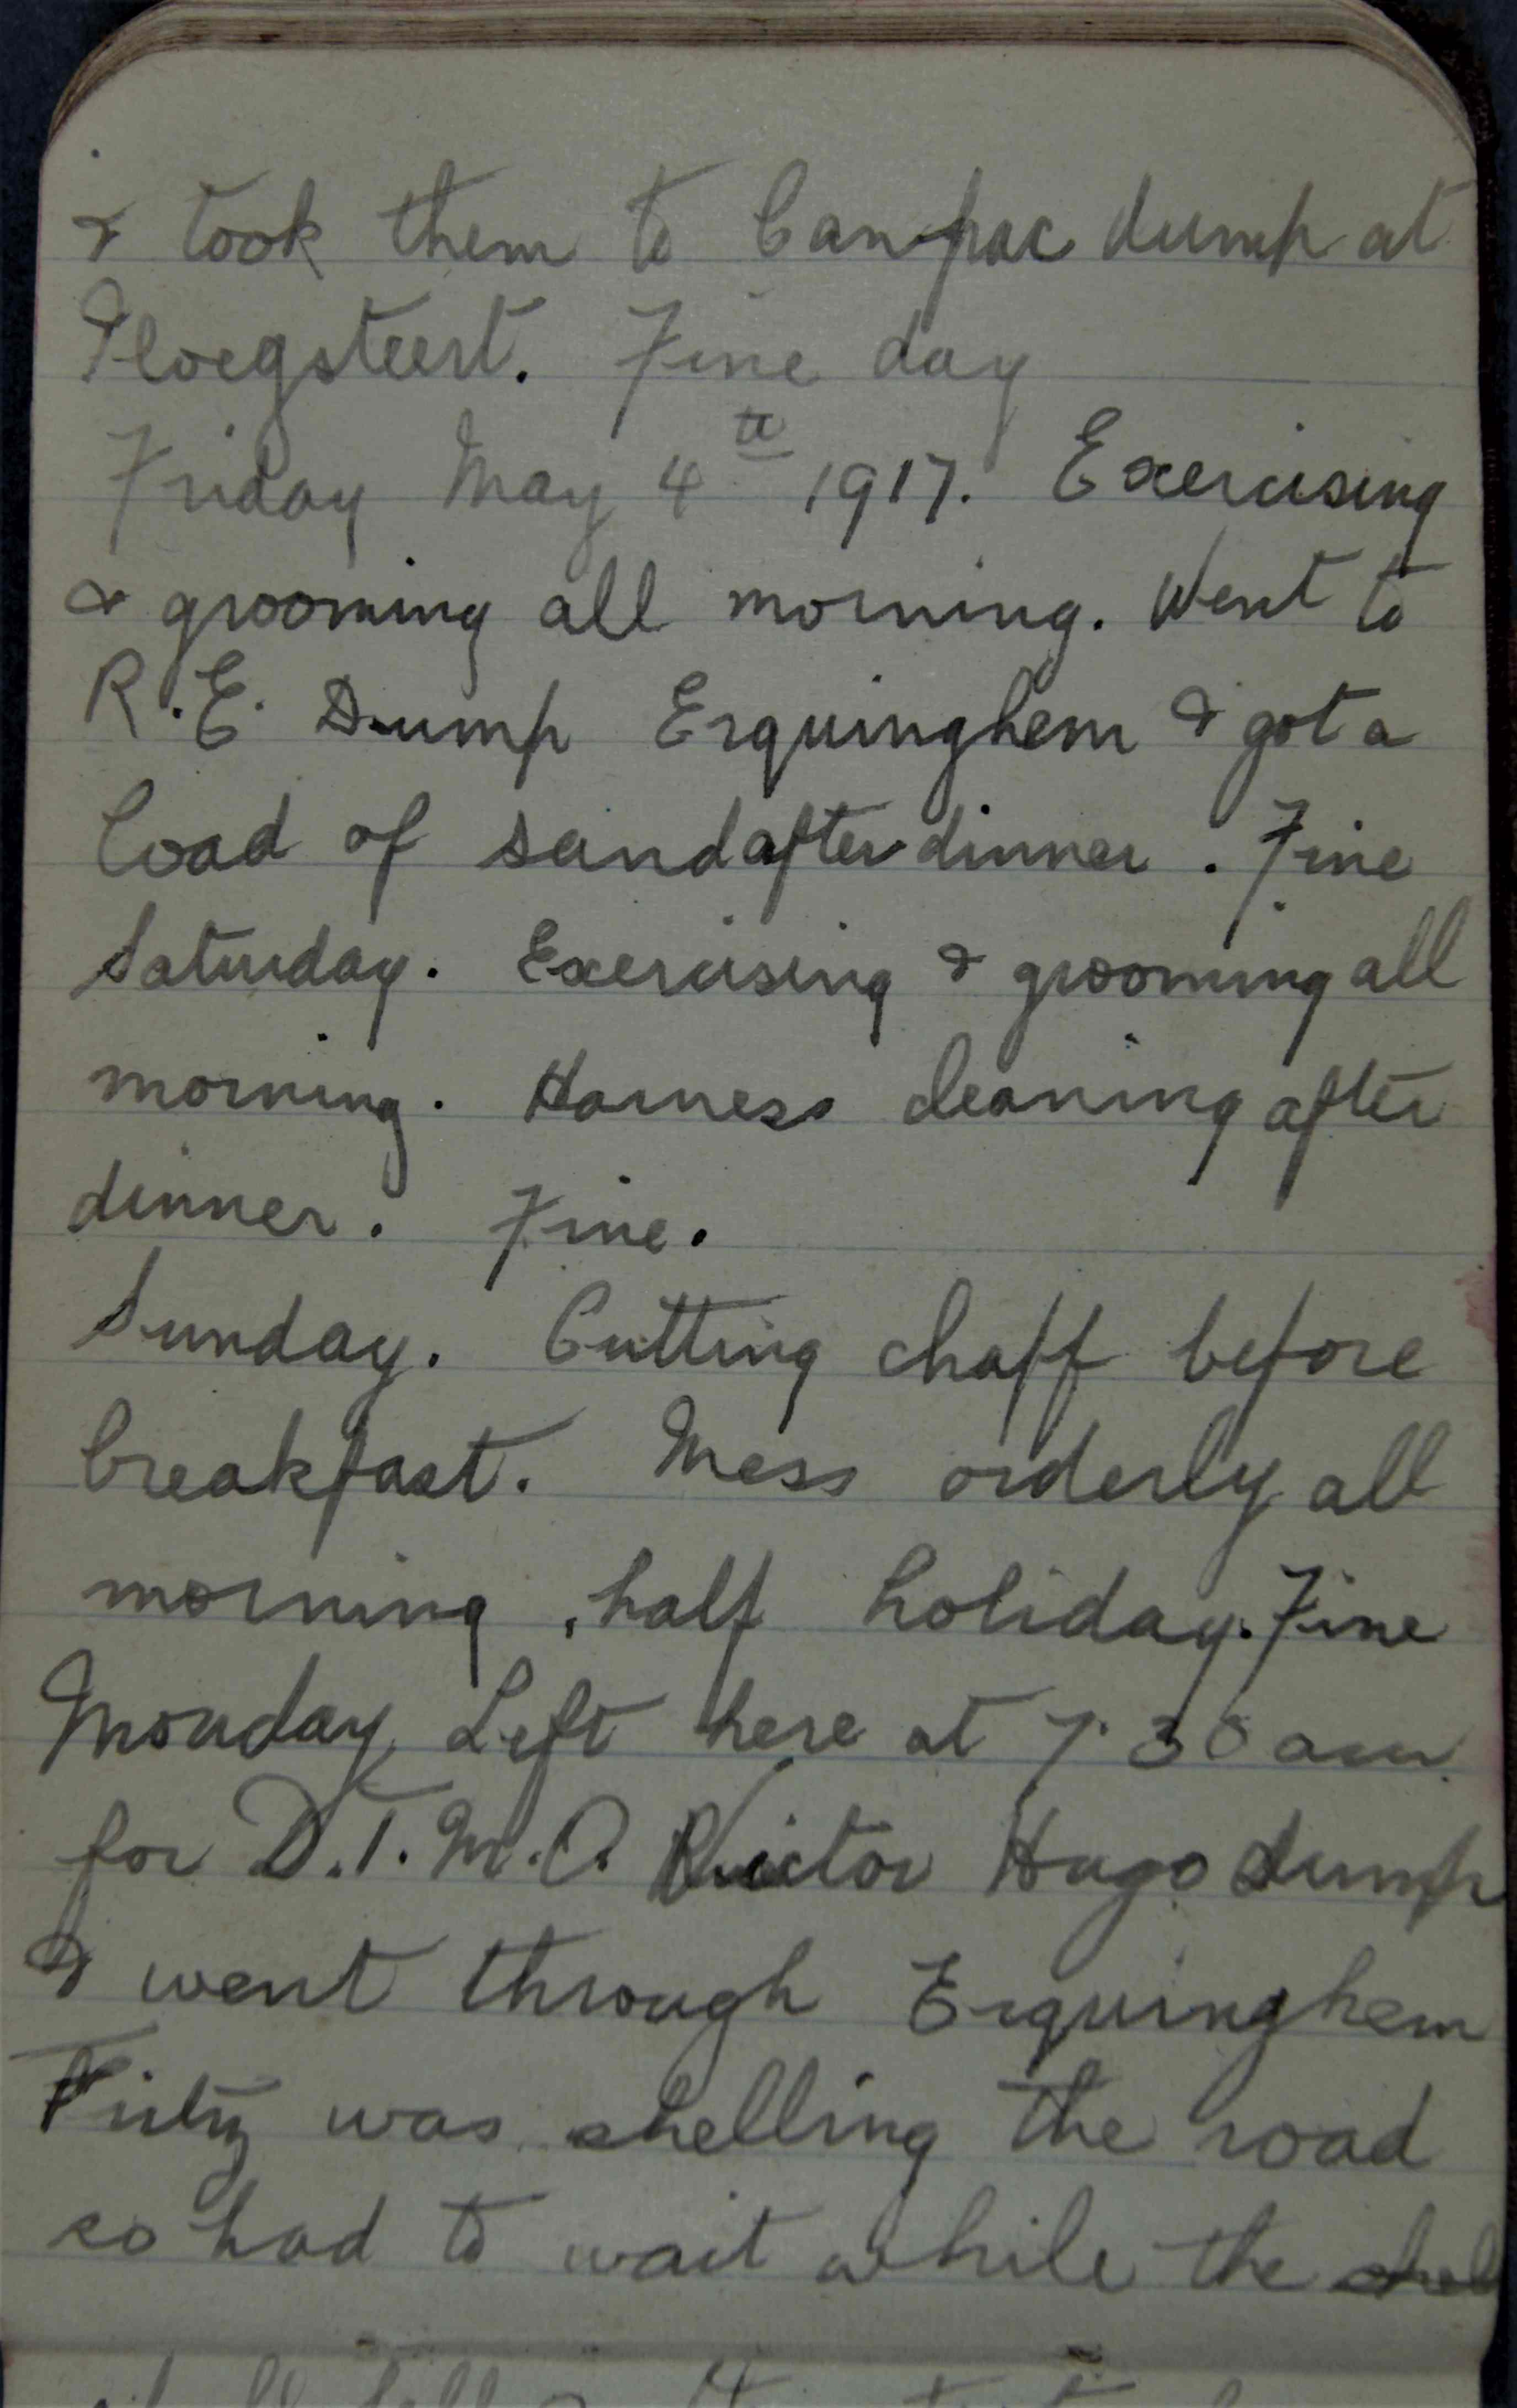 & took them to Canpac dump at
Ploegsteert. Fine day
Friday May 4th 1917. Exercising
& grooming all morning. Went to
R.E. Dump Erquinghem & got a
load of sand after dinner. Fine
Saturday. Exercising & grooming all
morning. Harness cleaning after
dinner. Fine.
Sunday. Cutting chaff before
breakfast. Mess orderly all
morning, half holiday. Fine
Monday Left here at 7.30 am
for D.T.M.O. Victor Hugo dump
& went through Erquinghem
Fritz was shelling the road
so had to wait while the